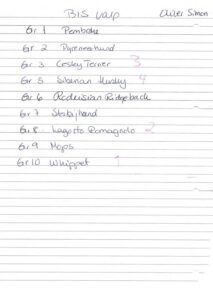 BIS valp Oliver Simon
Gr 1 Pembroke
Gr 2 Pyreneerhund
Gr 3 Cesky Terrier 3
Gr 5 Siberian Husky 4
Gr 6 Rodesian Ridgeback
Gr 7 Stabijhond
Gr 8 Lagotto Romagnolo 2
Gr 9 Mops
Gr 10 Whippet 1